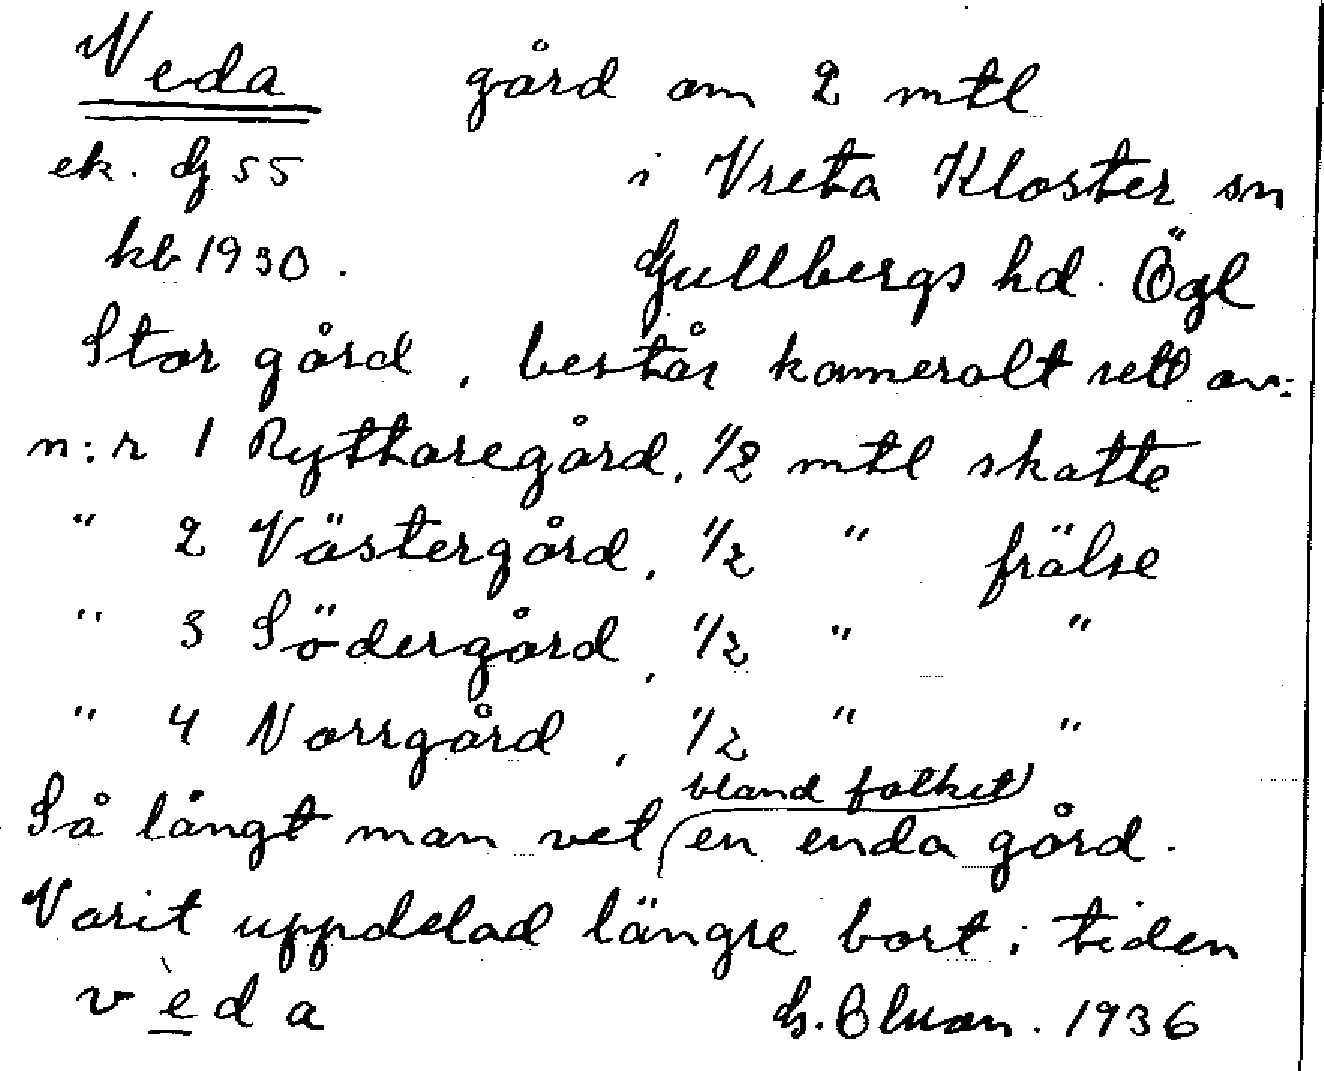 Veda gård om 2 mtl
ek. G 55 i Vreta Kloster sn
kb 1930. Gullbergs hd. Ögl
Stor gård, består kameralt sett av:
n:r 1 Ryttaregård, 1/2 mtl skatte
" 2 Västergård, 1/2 " frälse
" 3 Södergård, 1/2 " "
" 4 Norrgård, 1/2 " "
bland folket
Så långt man vet en enda gård.
Varit uppdelad längre bort i tiden
vèda 1936